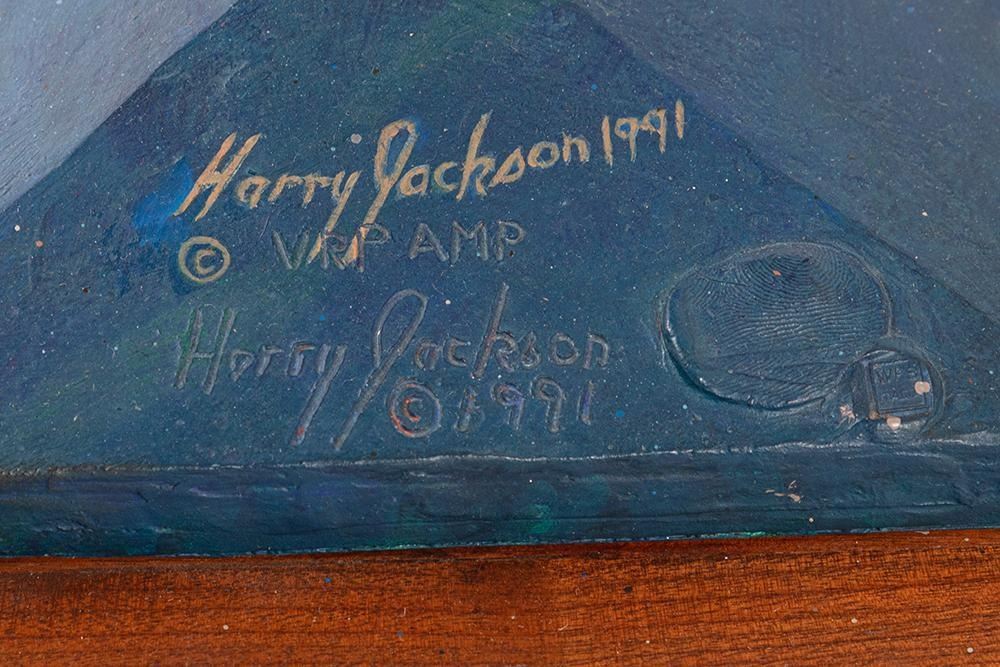 Harry Jackson 1991
© VRP AMP
Harry Jackson
© 1991